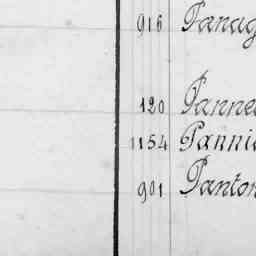 916 Panag
120 Pannee
1154 Pannie
901 Panton